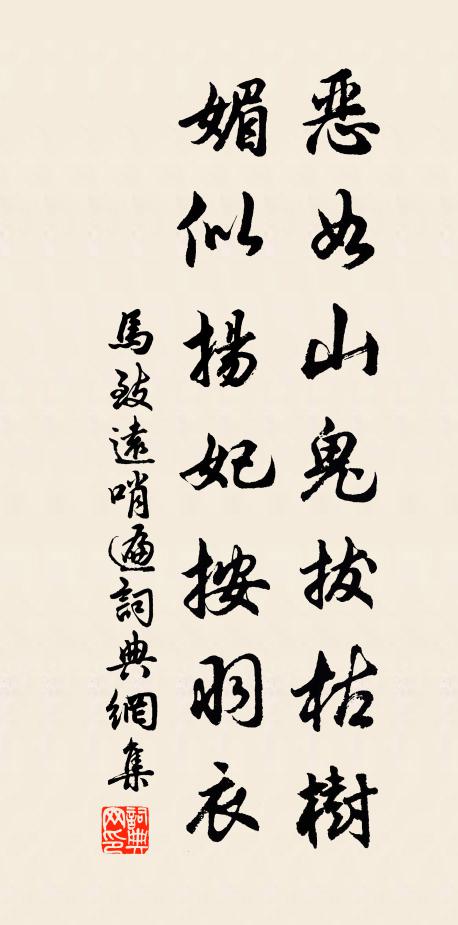 惡如山鬼拔枯樹
媚似揚妃按羽衣
馬致遠哨遍詞典網集
詞典網印